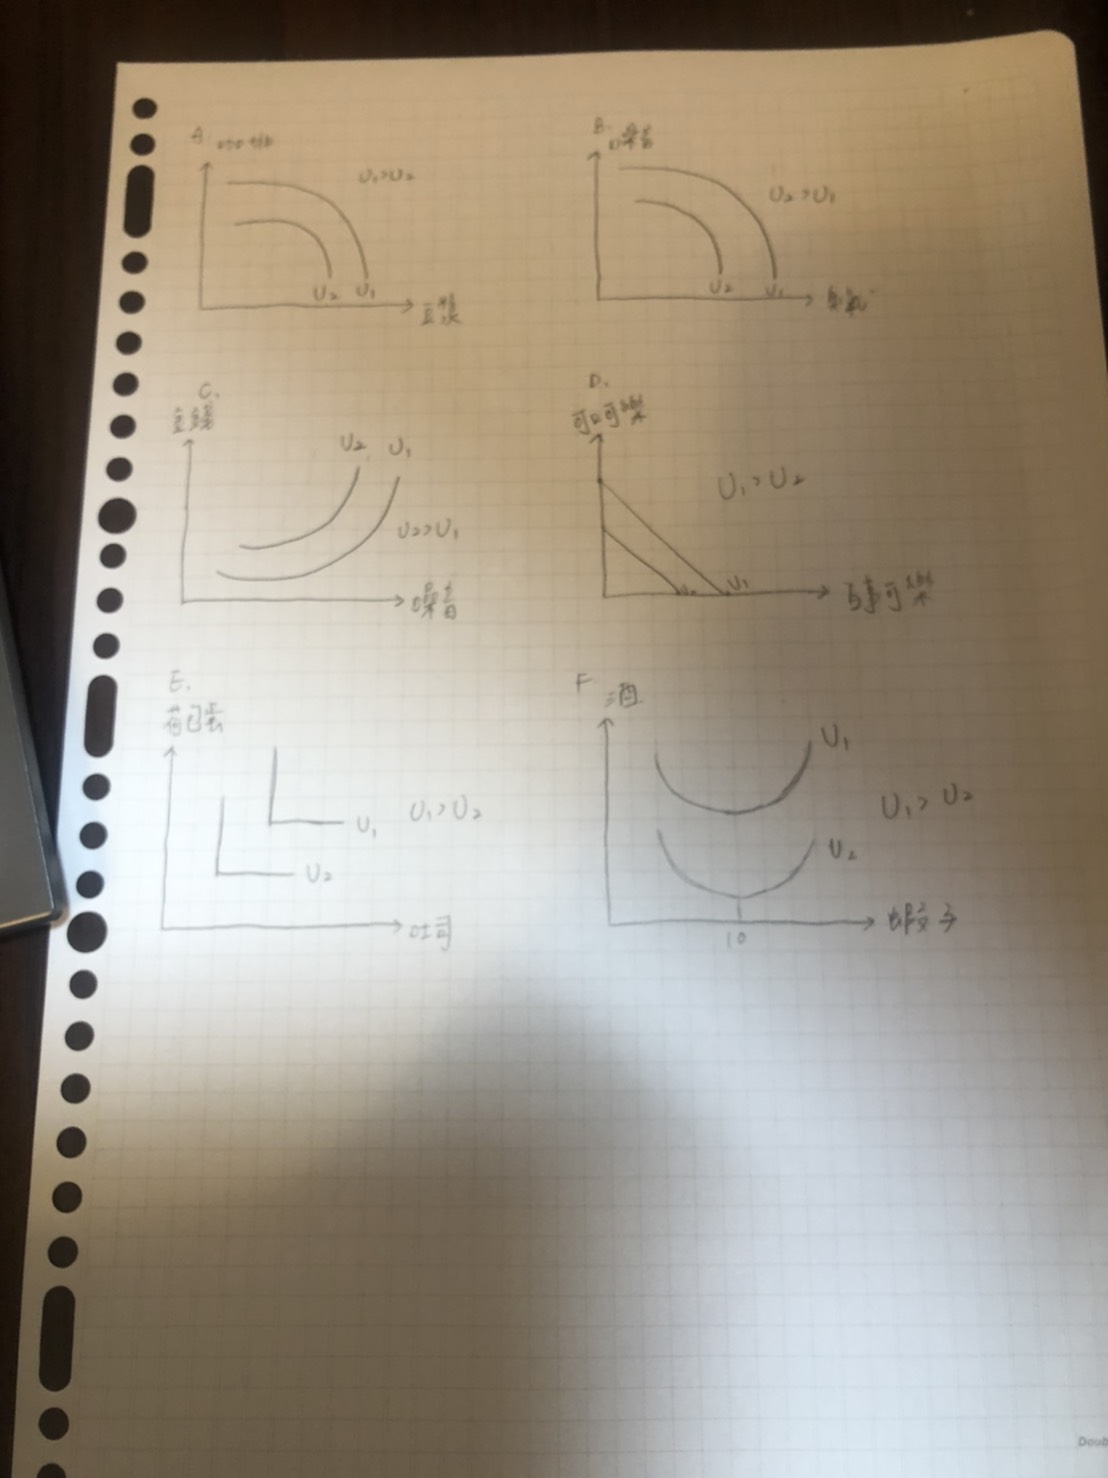 A. 咖啡
U₁>U₂
U₂ U₁
豆漿
B.
噪音
U₂>U₁
U₂ U₁
臭氣
C.
金錢
U₂ U₁
U₂>U₁
噪音
D.
可口可樂
U₁>U₂
U₂ U₁
百事可樂
E.
荷包蛋
U₁ U₁>U₂
U₂
吐司
F 酒
U₁
U₁> U₂
U₂
10
蝦餃子
Doub